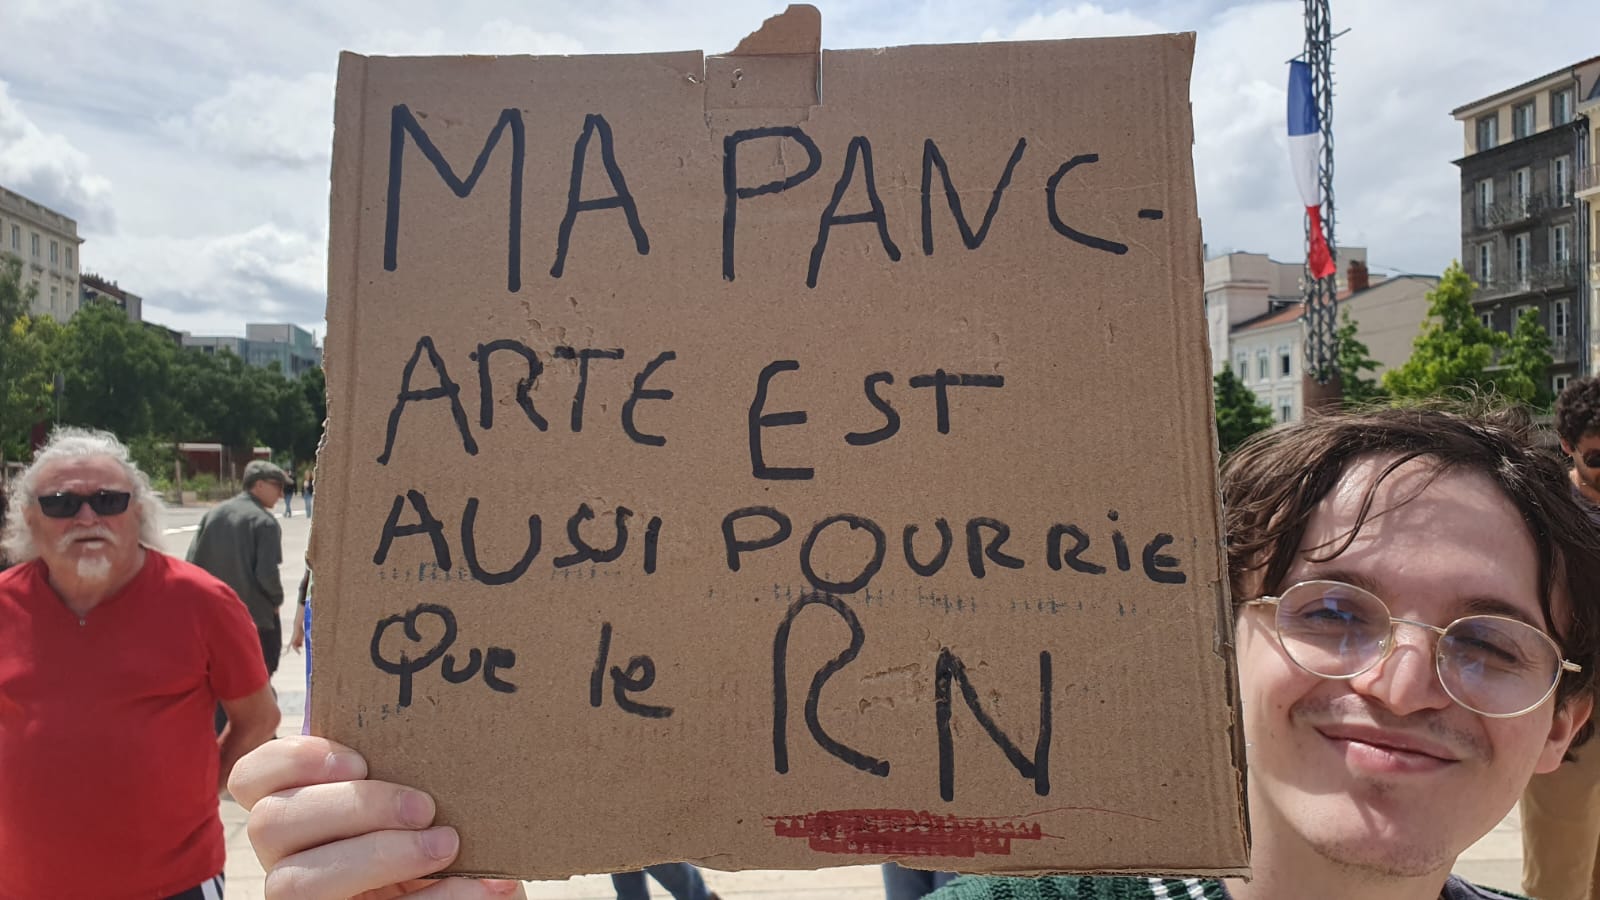 MA PANC-
ARTE EST
AUSSI POURRIE
QUE le RN